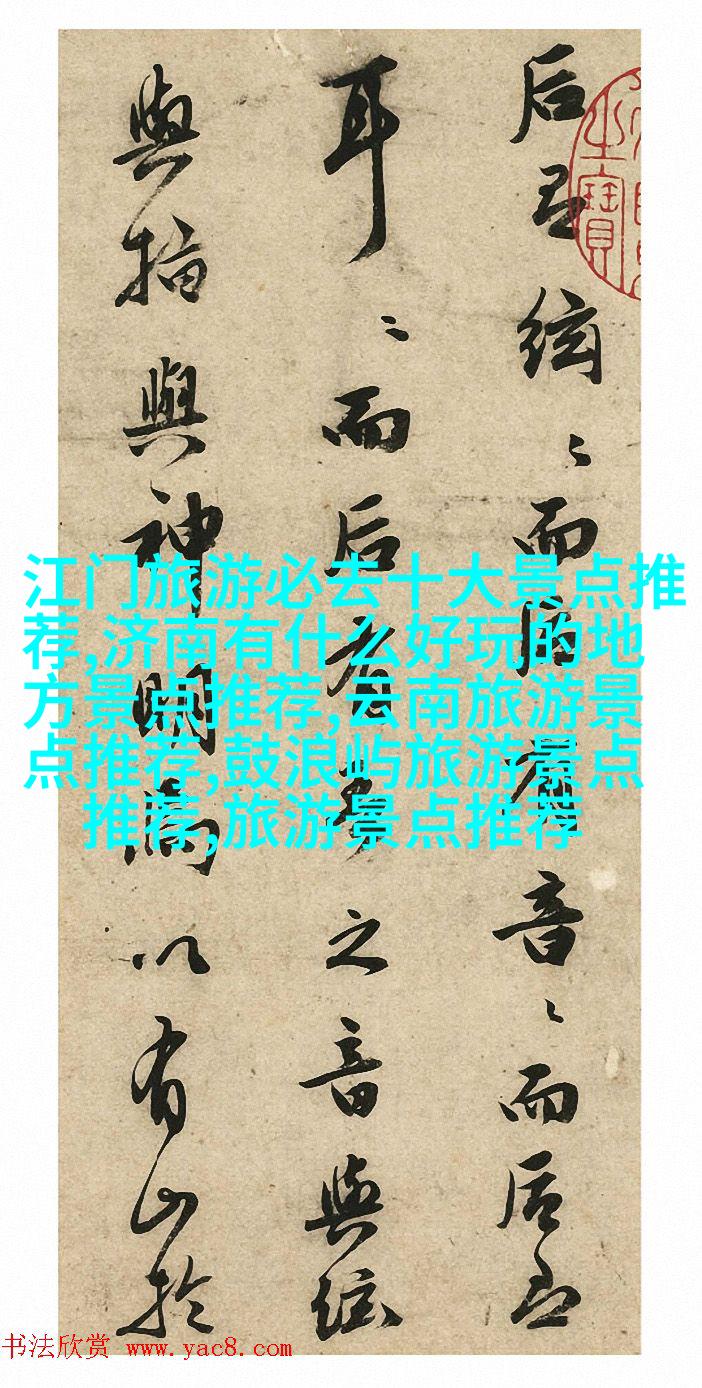 后絃〻而后音〻而后
耳〻而后之音與絃
與指與神明以有山於
江门旅游必去十大景点推
荐,济南有什么好玩的地
方景点推荐,云南旅游景
点推荐,鼓浪屿旅游景点
推荐,旅游景点推荐
之寶
书法欣赏 www.yac8.com